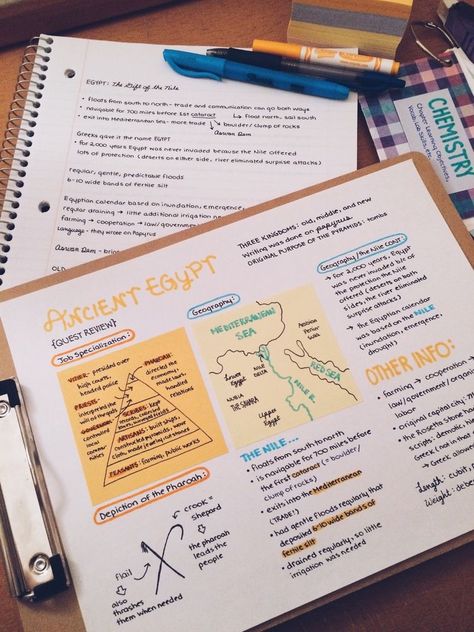 EGYPT: The Gift of the Nile
• floats from south to north - trade and communication can go both ways
• navigable for 700 miles before 1st cataract ↳ float north, sail south
• exit into Mediterranean Sea - more trade boulder/clump of rocks
Aswan Dam
Greeks gave it the name EGYPT
• for 2,000 years Egypt was never invaded because the Nile offered
lots of protection (deserts on either side, river eliminated surprise attacks)
regular, gentle, predictable floods
6-10 wide bands of fertile silt
Egyptian calendar based on inundation, emergence,
regular draining → little additional irrigation
farming → cooperation → law/government
Language - they wrote on Papyrus
Aswan Dam -
OLD
CHEMISTRY
Chapter Learning Objectives,
Vocab, Lab Skills, etc.
ANCIENT EGYPT
{QUEST REVIEW}
THREE KINGDOMS: old, middle, and new
Writing was done on papyrus
ORIGINAL PURPOSE OF THE PYRAMIDS: tombs
Job Specialization:
VIZIER: presided over
high courts,
headed police
PHAROAH:
directed the
economy,
made laws,
handled
relations
PRIESTS:
interpreted the
will of gods
GOVERNOR:
controlled
local
SCRIBES: kept
records,
ARTISANS: built ships,
constructed pyramids, wove
cloth, made jewelry, cut stones
PEASANTS: farming, public works
Geography:
MEDITERRANEAN
SEA
Lower
Egypt
NILE
DELTA
NUBIA
THE SAHARA
NILE R.
Upper
Egypt
RED SEA
Geography/the Nile CONT.
→ for 2000 years, Egypt
was never invaded b/c of
the protection the Nile
offered (deserts on both
sides, the river eliminated
surprise attacks)
→ the Egyptian calendar
was based on the NILE
(inundation, emergence,
drought)
THE NILE...
• floats from south to north
• is navigable for 700 miles before
the first cataract (= boulder/
clump of rocks)
• exits into the Mediterranean
(TRADE!)
• had gentle floods regularly that
deposited 6-10 wide bands of
fertile silt
• drained regularly, so little
irrigation was needed
OTHER INFO:
• farming → cooperation
→ law/government/organized
labor
• original capital city:
• the Rosetta Stone
scripts: demotic,
Greek
→ Greek
Length: cubit
Weight: deben
Depiction of the Pharoah:
crook =
shepard
↳ the pharoah
leads the
people
flail
↳ also
thrashes
them when needed